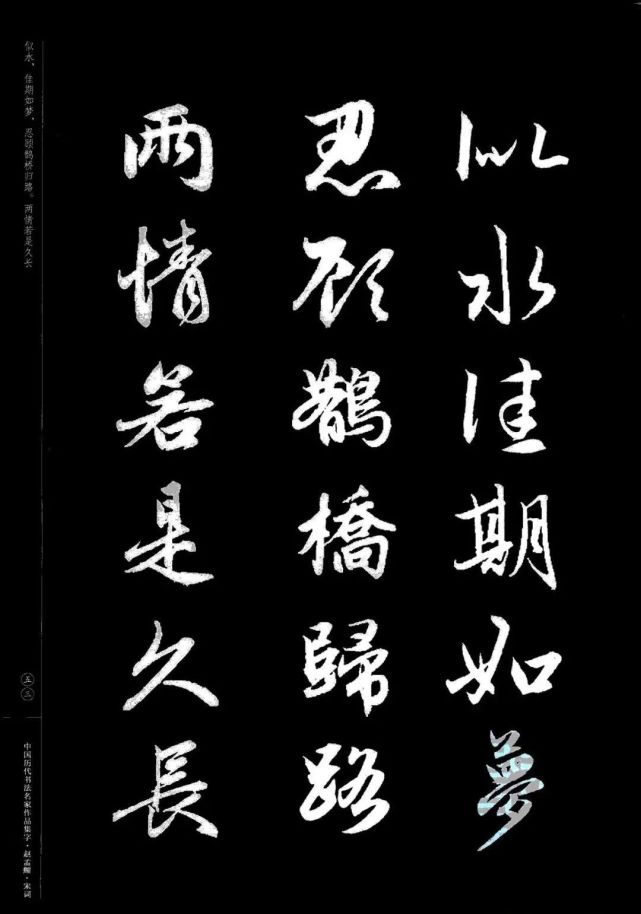 似水佳期如夢
忍顾鵲橋歸路
兩情若是久長
似水，佳期如梦，忍顾鹊桥归路。两情若是久长
五三
中国历代书法名家作品集字·赵孟頫·宋词